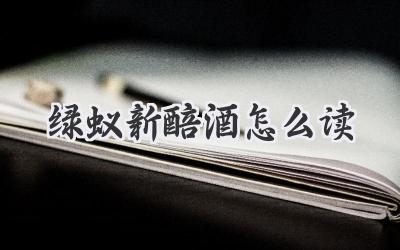 绿蚁新醅酒怎么读